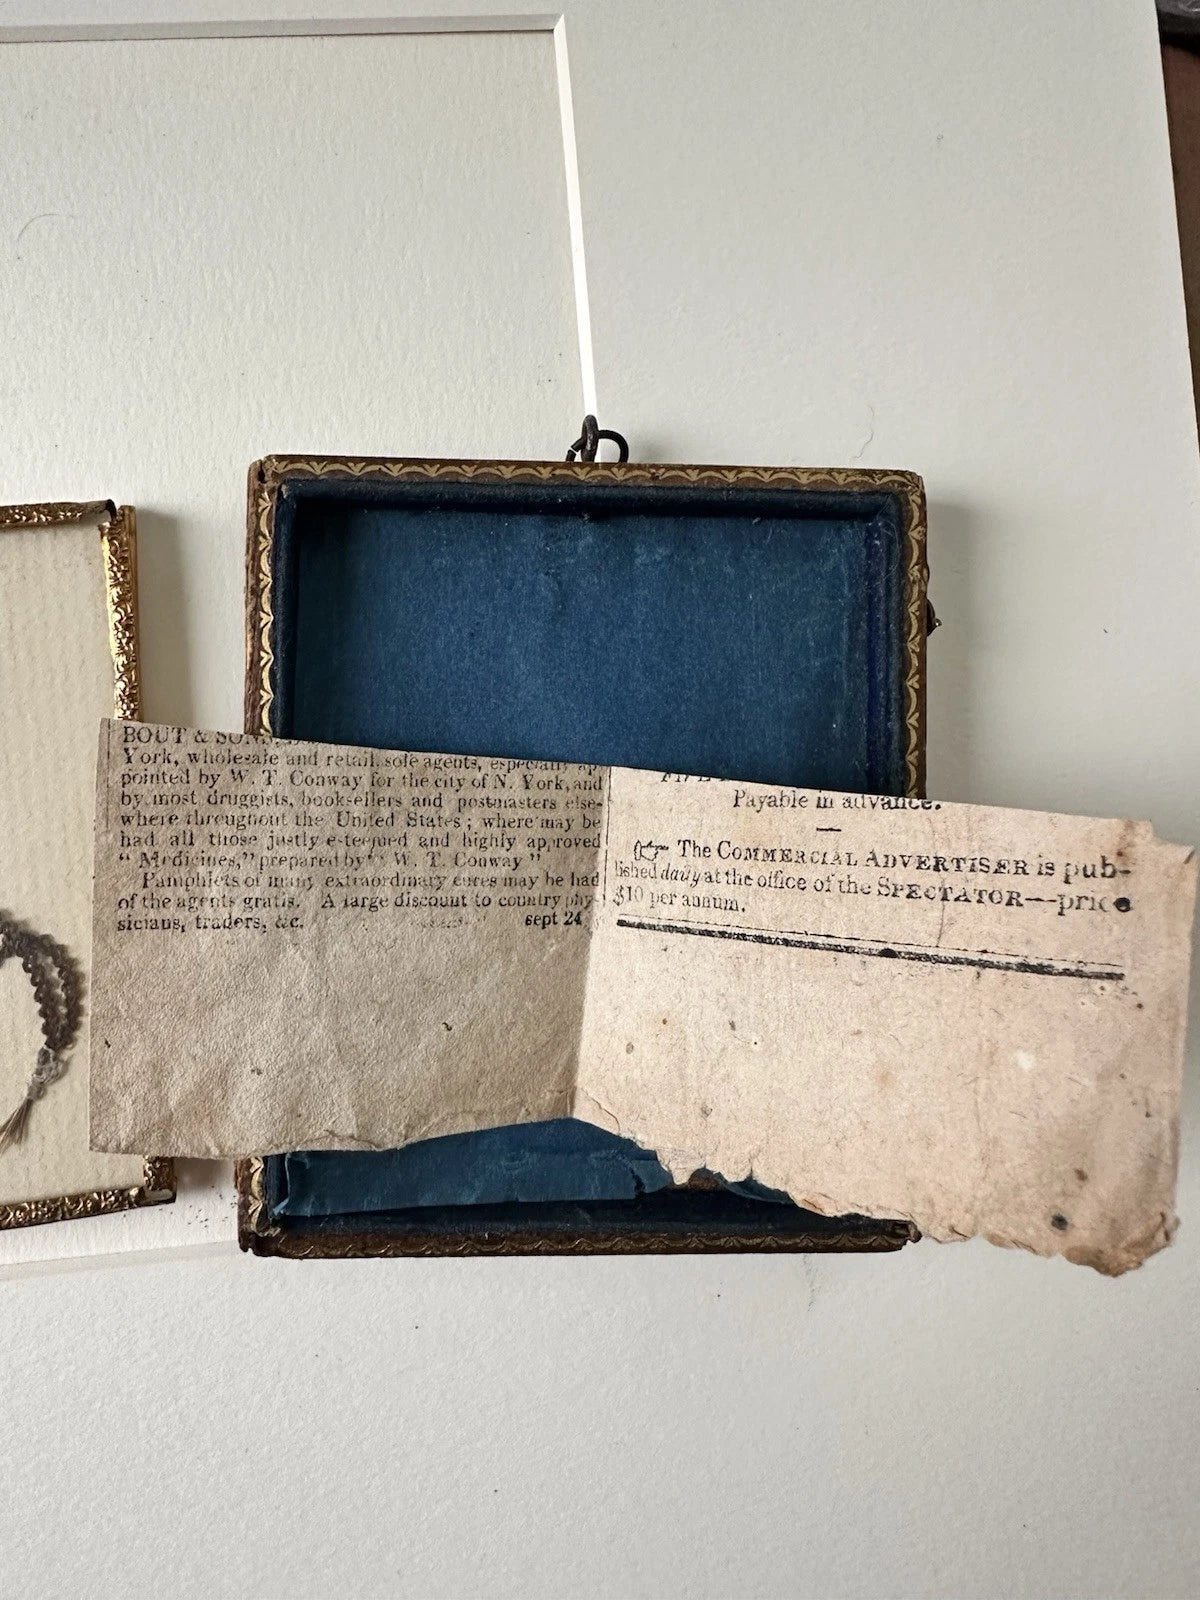 BOUT & SON
York, wholesale and retail, sole agents, especially ap-
pointed by W. T. Conway for the city of N. York, and
by most druggists, booksellers and postmasters else-
where throughout the United States; where may be
had all those justly esteemed and highly approved
"Medicines," prepared by "W. T. Conway"
Pamphlets of many extraordinary cures may be had
of the agents gratis. A large discount to country phy-
sicians, traders, &c. sept 24
Payable in advance.
☞ The COMMERCIAL ADVERTISER is pub-
lished daily at the office of the SPECTATOR—price
$10 per annum.